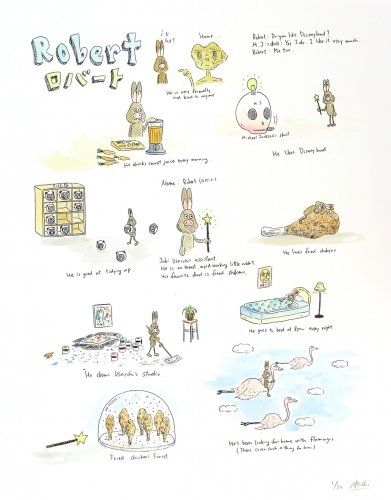 Robert
ロバート
Home...
He is very friendly
not kind to anyone
Robert: Do you like Disneyland?
M.J's skull: Yes I do. I like it very much.
Robert: Me too.
M.J
Michael Jackson's skull
He likes Disneyland
He drinks carrot juice every morning.
Name: Robert
Job: Usaichi's assistant
He is an honest, hard working little rabbit.
His favorite food is fried chicken.
He is good at tidying up
He loves fried chicken
He goes to bed at 8pm every night.
He cleans Usaichi's studio
Fried chicken forest
He's been looking for home with flamingos.
(There is no such a thing for him)
1/20